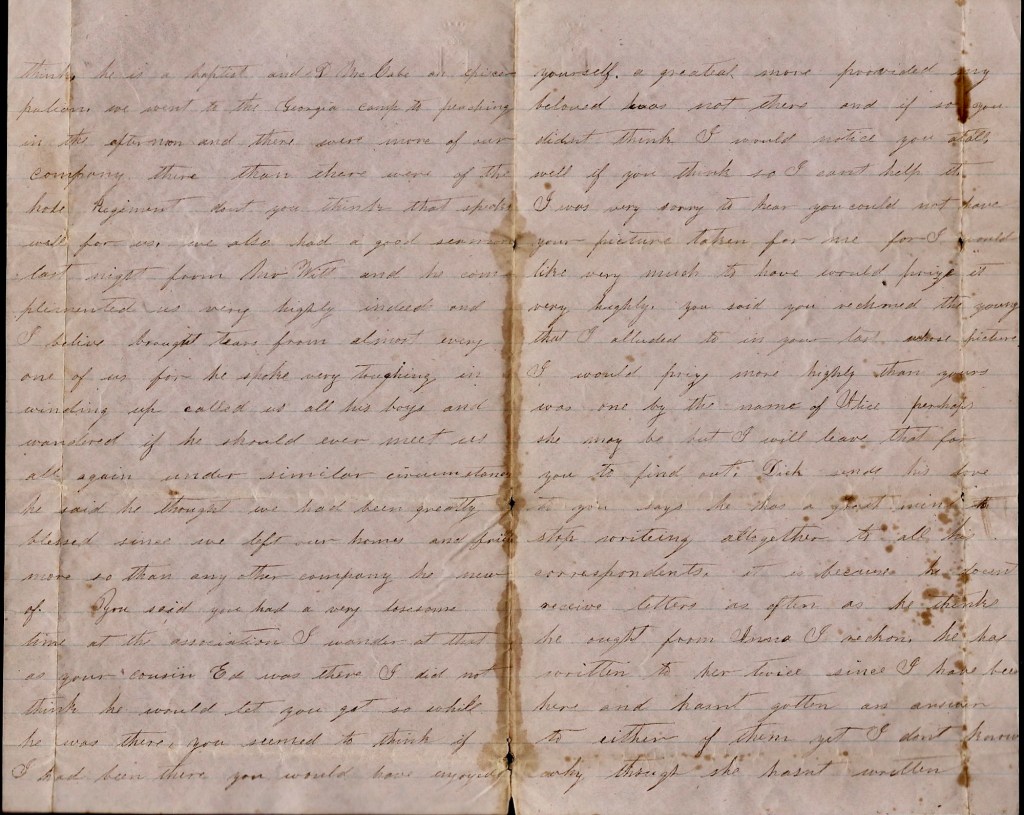 think he is a baptist and D McCabe an episco
palian we went to the Georgia camp to preaching
in the afternoon and there were more of our
company there than there were of the
hole Regiment dont you think that speaks
well for us. we also had a good sermon
last night from Mr Witt and he com
plemented us very highly indeed and
I belive brought tears from almost every
one of us for he spoke very touching in
winding up called us all his boys and
wandered if he should ever meet us
all again under similar circumstances
he said he thought we had been greatly
blessed since we left our homes and
more so than any other company he new
of. You said you had a very lonesome
time at the association I wander at that
as your cousin Ed was there I did not
think he would let you get so while
he was there, you seemed to think if
I had been there you would have enjoyed
yourself. a great eal more provided my
beloved was not there and if so you
didnt think I would notice you atall,
well if you think so I cant help it.
I was very sorry to hear you could not have
your picture taken for me for I would
like very much to have would prize it
very highly. you said you reckoned the young
that I alluded to in your last whose picture
I would prize more highly than yours
was one by the name of Alice perhaps
she may be but I will leave that for
you to find out. Dick sends his love
to you says he has a great mind to
stop writeing altogether to all his
correspondents. it is because he dount
receive letters as often as he thinks
he ought from Anna I reckon, he has
written to her twice since I have been
here and hasnt gotten an answer
to either of them yet I dont know
why though she hasnt written